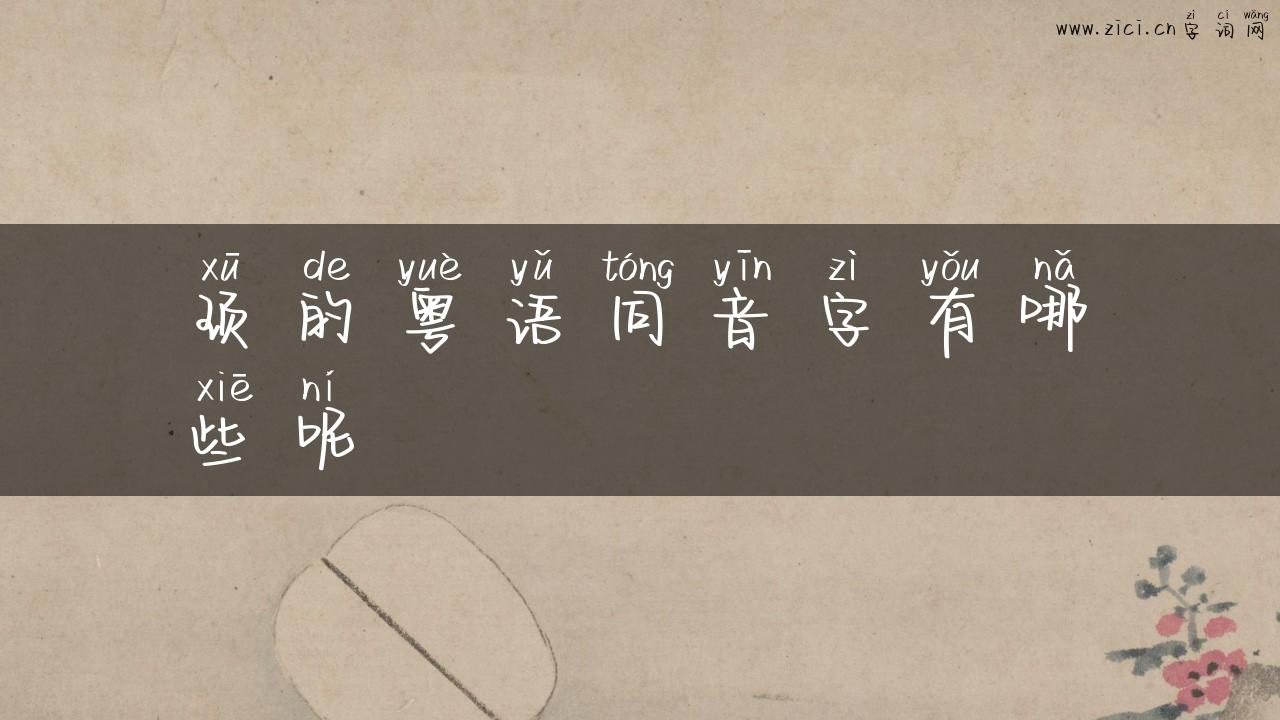 zì cí wǎng
www.zici.cn 字 词 网
xū de yuè yǔ tóng yīn zì yǒu nǎ
顼 的 粤 语 同 音 字 有 哪
xiē ní
些 呢